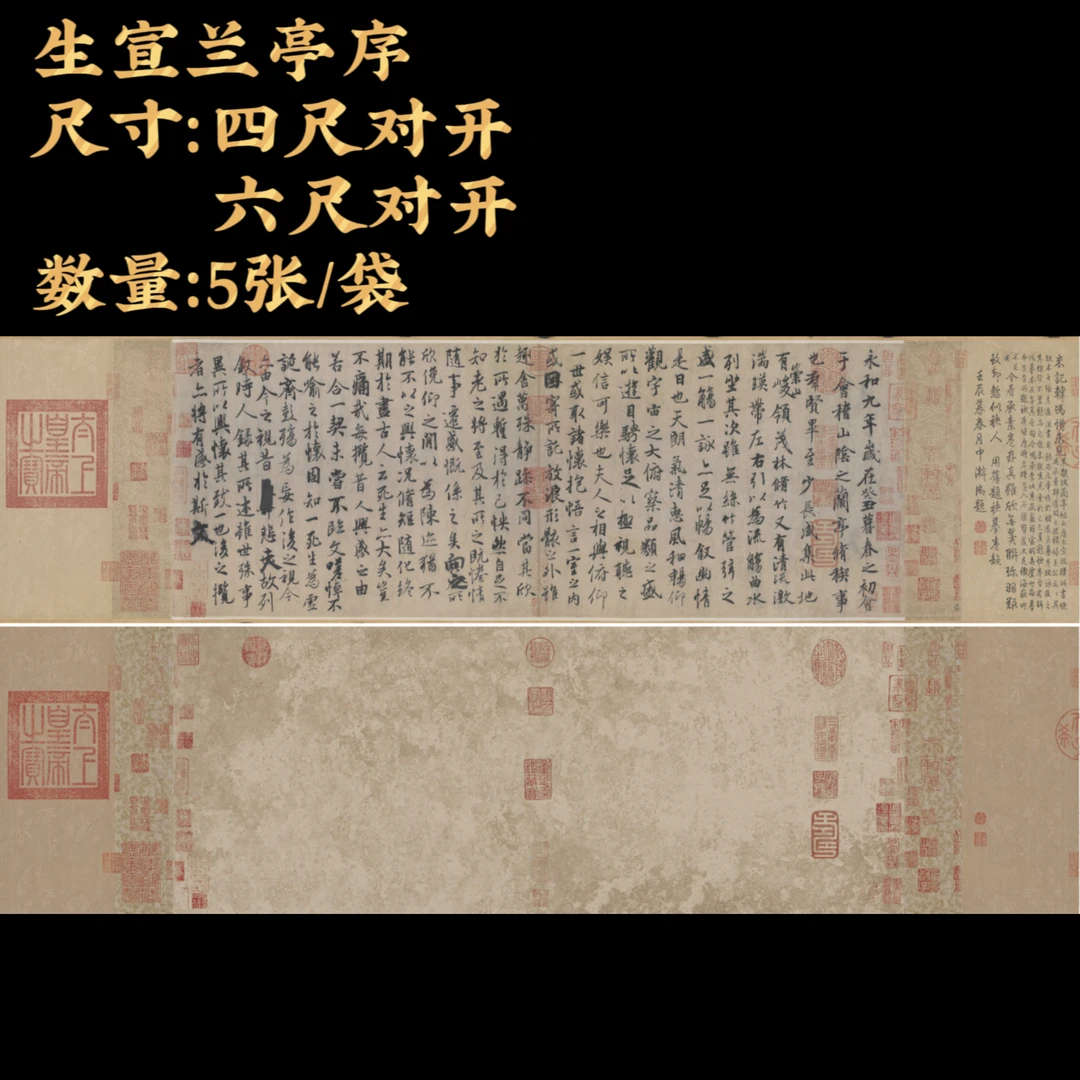 生宣兰亭序
尺寸:四尺对开
六尺对开
数量:5张/袋
永和九年歲在癸丑暮春之初會
于會稽山陰之蘭亭脩禊事
也羣賢畢至少長咸集此地
有崇山峻領茂林脩竹又有清流激
湍暎帶左右引以為流觴曲水
列坐其次雖無絲竹管弦之
盛一觴一詠亦足以暢叙幽情
是日也天朗氣清惠風和暢仰
觀宇宙之大俯察品類之盛
所以遊目騁懷足以極視聽之
娛信可樂也夫人之相與俯仰
一世或取諸懷抱悟言一室之內
或因寄所託放浪形骸之外雖
趣舍萬殊靜躁不同當其欣
於所遇暫得於己怏然自足不
知老之將至及其所之既惓情
隨事遷感慨係之矣向之所
欣俛仰之閒以為陳迹猶不
能不以之興懷況脩短隨化終
期於盡古人云死生亦大矣豈
不痛哉每攬昔人興感之由
若合一契未嘗不臨文嗟悼不
能喻之於懷固知一死生為虛
誕齊彭殤為妄作後之視今
亦由今之視昔悲夫故列
叙時人錄其所述雖世殊事
異所以興懷其致一也後之攬
者亦將有感於斯文
太上皇帝之寶
太上皇帝之寶